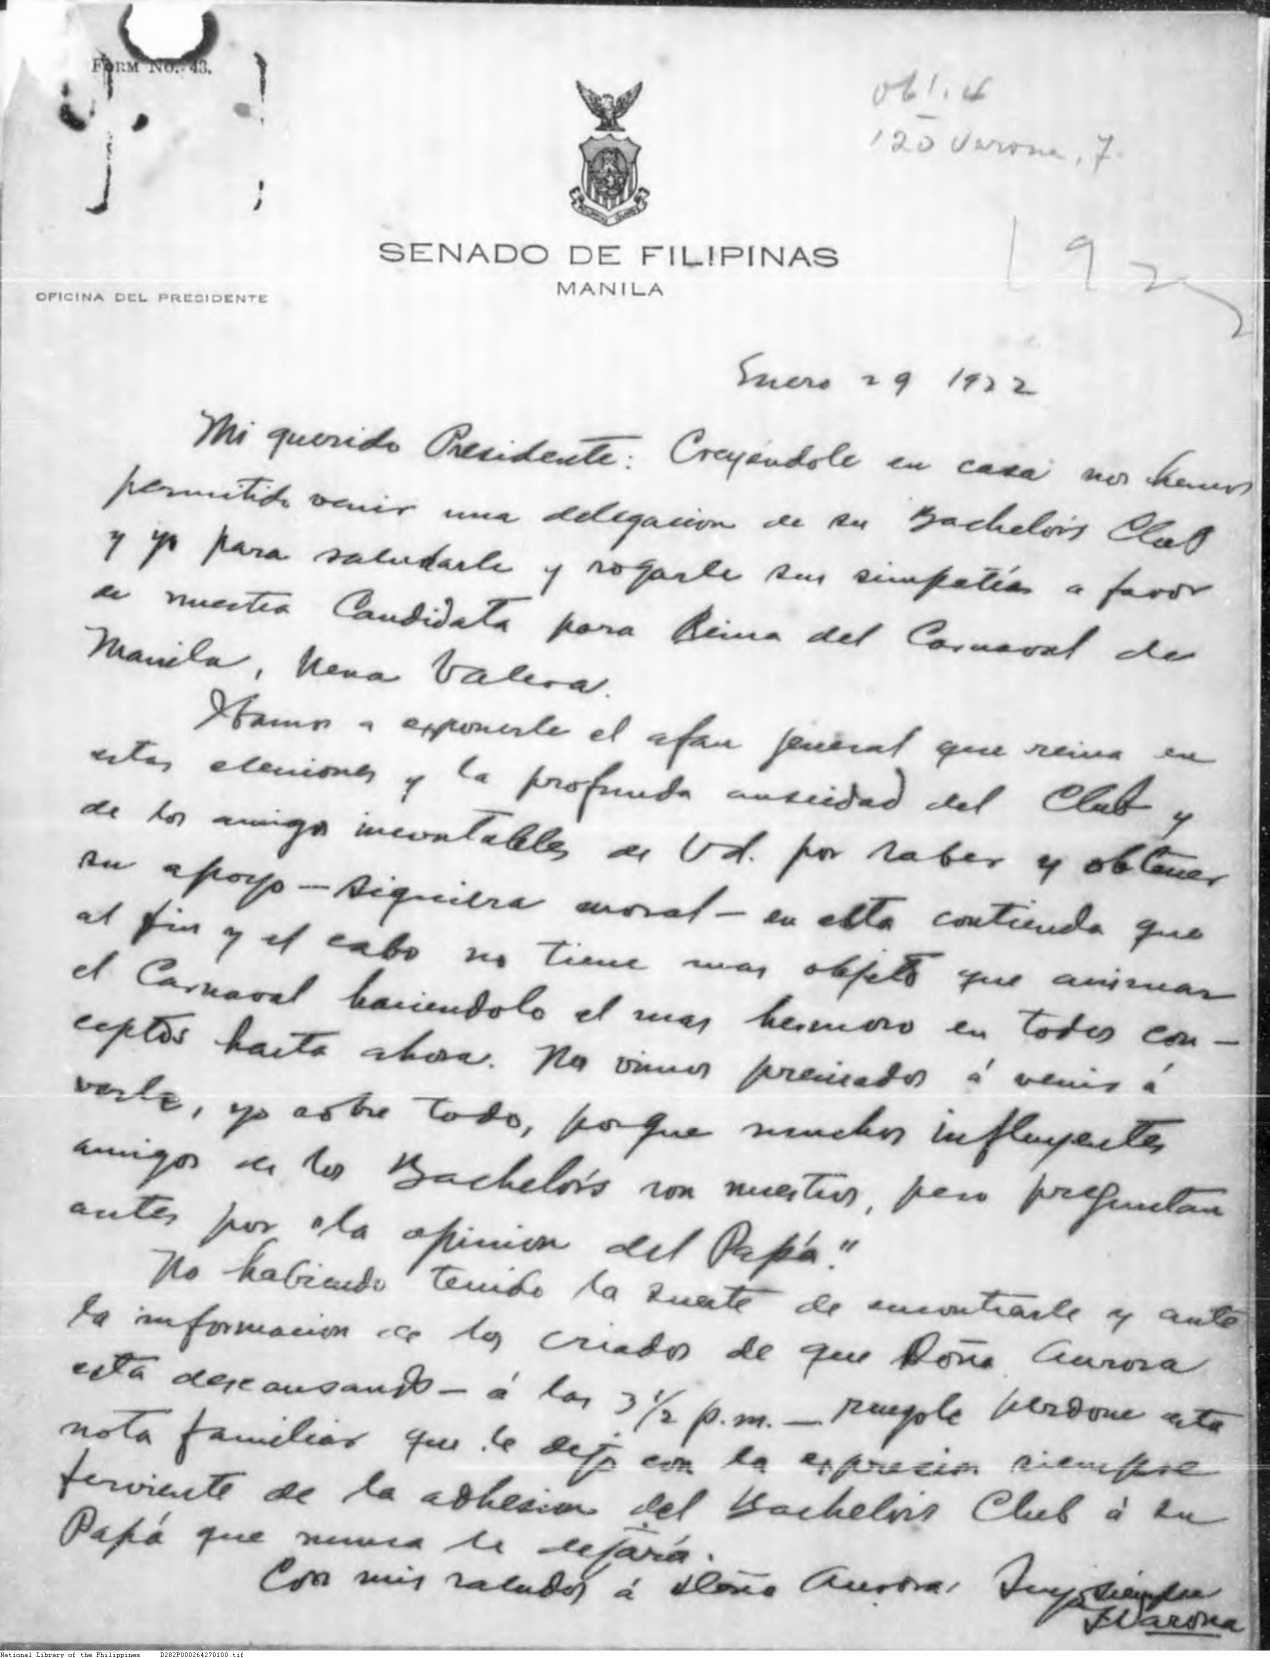 FORM NO. 43.
120 Varona, 7.
SENADO DE FILIPINAS
MANILA
OFICINA DEL PRESIDENTE
192
Enero 29 1922
Mi querido Presidente: Creyéndole en casa nos hemos
permitido venir una delegacion de su Bachelors Club
y yo para saludarle y rogarle sus simpatías a favor
de nuestra Candidata para Reina del Carnaval de
Manila, Nena Valera.
Ibamos a exponerle el afan general que reina en
estas elecciones y la profunda ansiedad del Club y
de los amigos incontables de Vd. por saber y obtener
su apoyo — siquiera moral — en esta contienda que
al fin y al cabo no tiene mas objeto que animar
el Carnaval haciendolo el mas hermoso en todos con-
ceptos hasta ahora. Nos vimos precisados á venir á
verle, yo sobre todo, porque muchos influyentes
amigos de los Bachelors son nuestros, pero preguntan
antes por "la opinion del Papá."
No habiendo tenido la suerte de encontrarle y ante
la informacion de los criados de que Doña Aurora
está descansando — á las 3 1/2 p.m. — ruegole perdone esta
nota familiar que le dejo con la expresion siempre
ferviente de la adhesion del Bachelors Club á su
Papá que nunca le dejará.
Con mis saludos á doña Aurora, Suyo siempre
FVarona
National Library of the Philippines D282P000264270100.tif